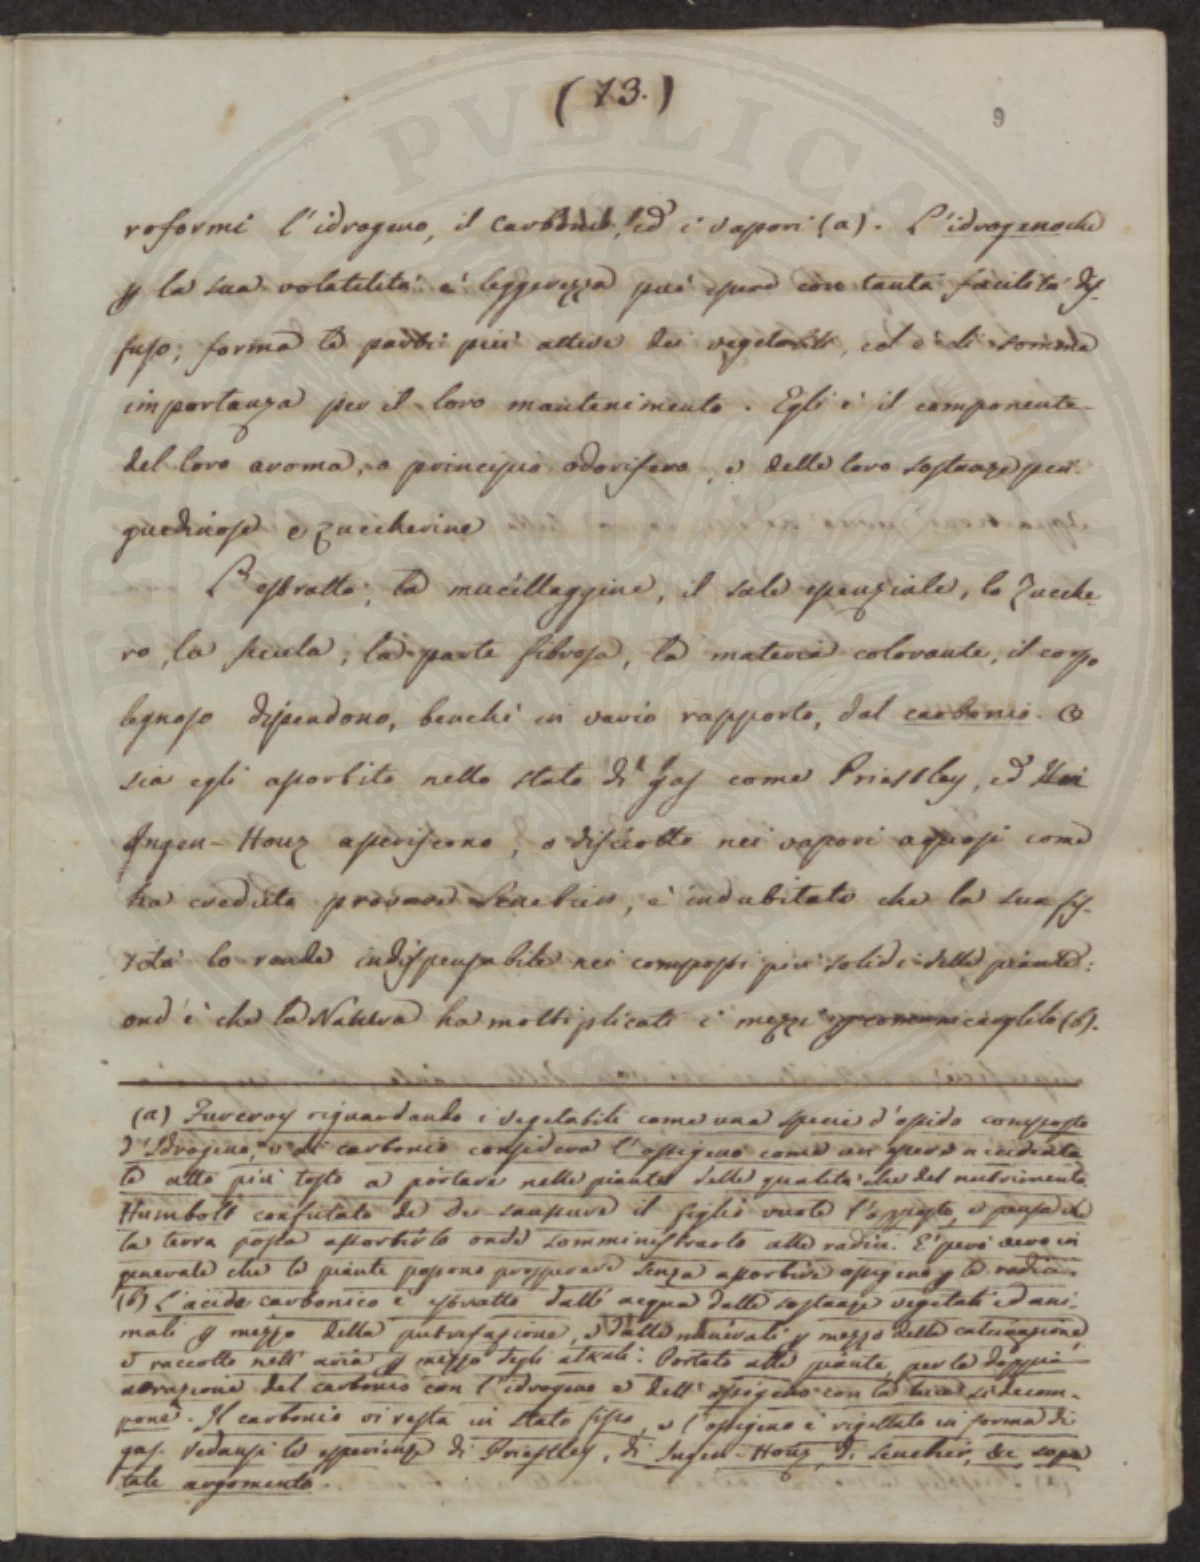 (13.)
9
roformi l'idrogeno, il carbonio, ed i vapori (a). L'idrogeno che
p la sua volatilità e leggerezza può essere con tanta facilità dif-
fuso, forma le parti più attive dei vegetabili, ed è di somma
importanza per il loro mantenimento. Egli è il componente
del loro aroma, o principio odorifero, e delle loro sostanze pin-
guedinose e zuccherine
L'estratto, la mucillaggine, il sale essenziale, lo zucche-
ro, la fecula, la parte fibrosa, la materia colorante, il corpo
legnoso dipendono, benchè in vario rapporto, dal carbonio. O
sia egli assorbito nello stato di gas come Priestley, ed
Ingen-Houz asseriscono, o disciolto nei vapori aquosi come
ha creduto provare Senebier, è indubitato che la sua fis-
sità lo rende indispensabile nei composti più solidi delle piante:
ond'è che la Natura ha moltiplicati i mezzi p comunicarglielo (b).
(a) Furcroy riguardando i vegetabili come una specie d'ossido composto
d'Idrogeno, e di carbonio considera l'ossigeno come un essere accidenta
le atto più tosto a portare nelle piante delle qualità che del nutrimento
Humbolt confutato da De Saussure il figlio vuole l'opposto, e pensa che
la terra possa assorbirlo onde somministrarlo alle radici. È però vero in
generale che le piante possono prosperare senza assorbire ossigeno p le radici.
(b) L'acido carbonico è estratto dall'acqua dalle sostanze vegetali ed ani-
mali p mezzo della putrefazione, e dalle minerali p mezzo della calcinazione,
e raccolto nell'aria p mezzo degli alkali. Portato alle piante, per la doppia
attrazione del carbonio con l'idrogeno e dell'ossigeno con la luce si decom-
pone. Il carbonio vi resta in stato fisso, e l'ossigeno è rigettato in forma di
gas. Vedansi le esperienze di Priestley, di Ingen-Houz, di Senebier, &c sopra
tale argomento.